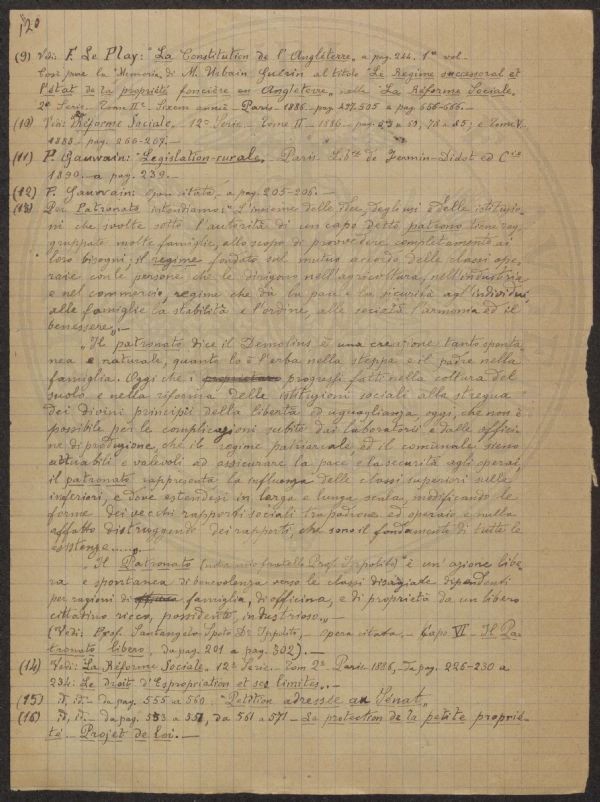 20
(9) Vedi: F. Le Play: "La Constitution de l'Angleterre" a pag. 244. 1º vol.
Così pure la Memoria di M. Urbain Guérin al titolo "Le Regime successoral et
l'état de la propriété foncière en Angleterre" nella "La Réforme Sociale.
2ª Serie. Tom IIº. Sixem année - Paris 1886. pag. 497.505 a pag. 656-666.-
(10) Vedi: Réforme Sociale. 12ª Serie - Tome II - 1886. pag. a 59, 78 a 85; e Tome V.
1888 pag. 260-267.-
(11) P. Gauwain: "Legislation-rurale." Paris. de Fermin-Didot ed Cie
1890. a pag. 239.-
(12) P. Gauwain: Opera citata, a pag. 205-206.-
(13) Per Patronato intendiamo: "L'insieme delle idee, degli usi e delle istituzio-
ni che svolte sotto l'autorità di un capo detto patrono tiene rag-
gruppate molte famiglie, allo scopo di provvedere completamente ai
loro bisogni; il regime fondato sul mutuo accordo delle classi ope-
raie con le persone che le dirigono nell'agricoltura, nell'industria
e nel commercio, regime che dà la pace e la sicurità agl'individui,
alle famiglie la stabilità e l'ordine, alle società l'armonia ed il
benessere".-
"Il patronato dice il Demolins è una creazione tanto sponta-
nea e naturale, quanto lo è l'erba nella steppa e il padre nella
famiglia. Oggi che i proprietari progressi fatti nella coltura del
suolo e nella riforma delle istituzioni sociali alla stregua
dei divini principii della libertà ed uguaglianza, oggi, che non è
possibile per le complicazioni subite dai laboratorii e dalle offici-
ne di produzione, che il regime patriarcale ed il comunale sieno
attuabili e valevoli ad assicurare la pace e la securità agli operai,
il patronato rappresenta la influenza delle classi superiori sulle
inferiori, e deve estendersi in larga e lunga scala, modificando le
forme dei vecchi rapporti sociali tra padrone ed operaio e nulla
affatto distruggendo dei rapporti, che sono il fondamento di tutte le
esistenze......"
"Il Patronato (nota mio fratello Prof. Ippolito) è un'azione libe-
ra e spontanea di benevolenza verso le classi disagiate dipendenti
per ragioni di famiglia, di officina, e di proprietà da un libero
cittadino ricco, possidente, industrioso".-
(Vedi: Prof. Santangelo Spoto Dr. Ippolito, opera citata. - Capo VI - Il Pa-
tronato libero, da pag. 201 a pag. 302).-
(14) Vedi: La Réforme Sociale. 12ª Serie. Tom 2º Paris 1886, Da pag. 226-230 a
234: Le droit d'Espropriation et ses limites.-
(15) Id, id. - da pag. 555 a 560: "Petition adressée au Sénat"
(16) Id, id. - da pag. 553 a 557, da 561 a 571 - La protection de la petite proprié-
té - Projet de loi.-